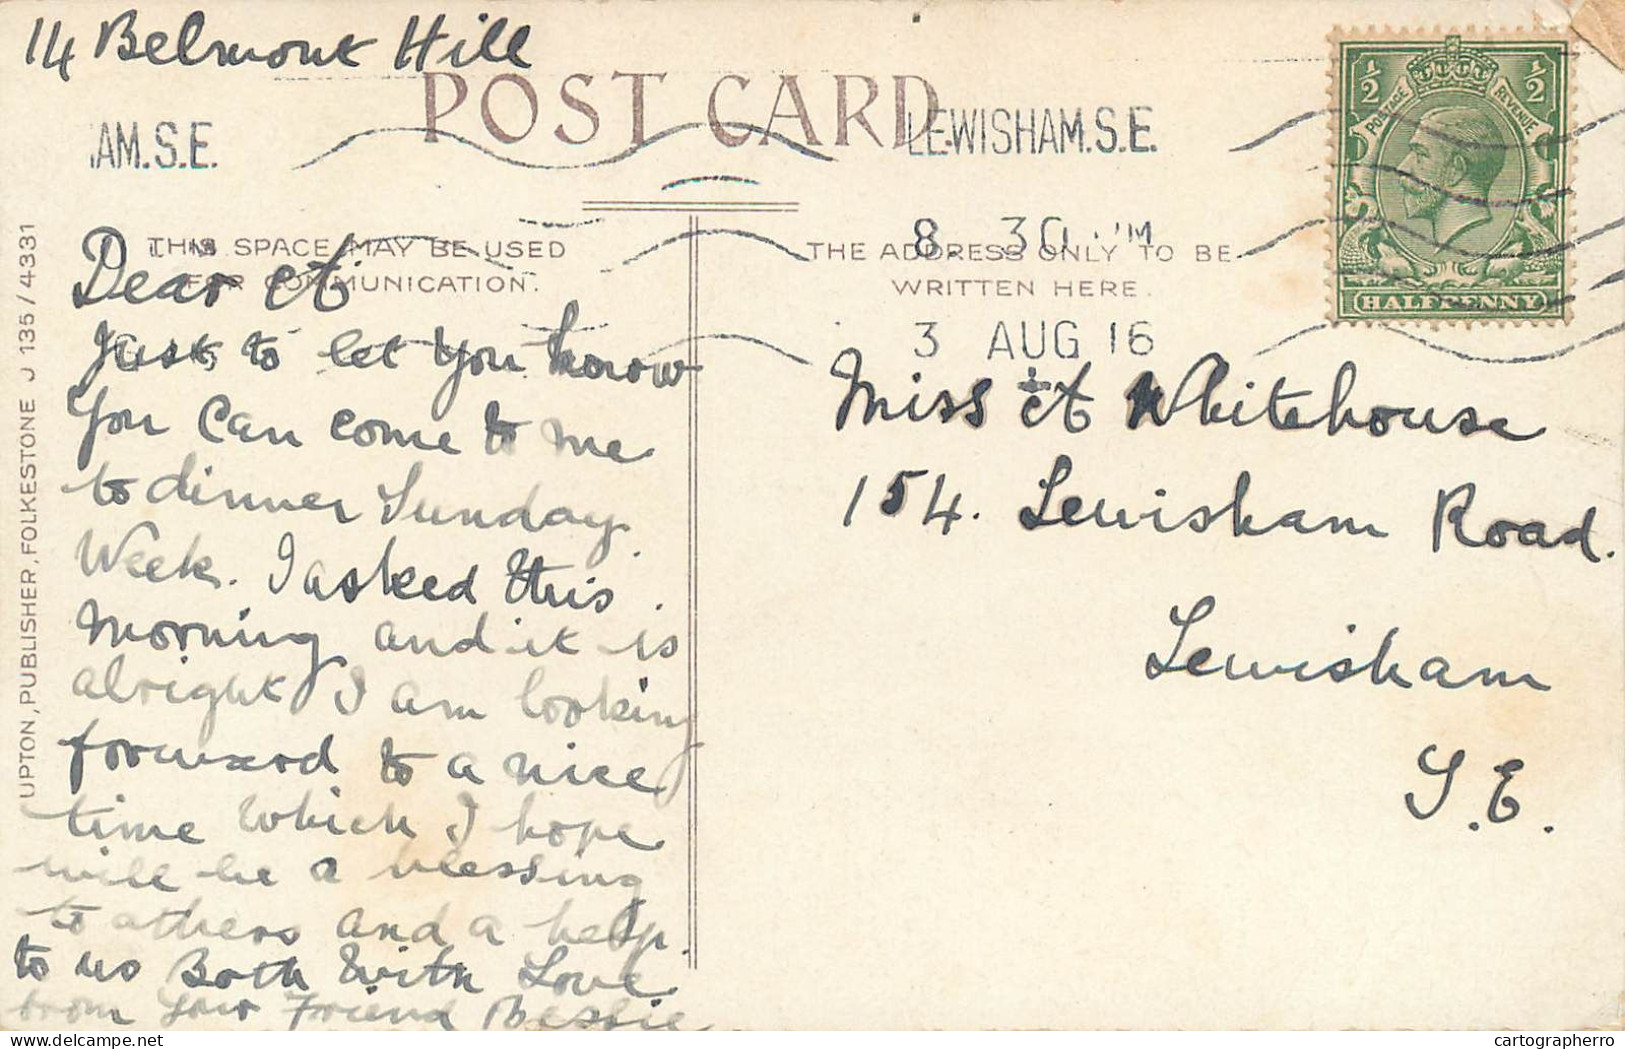 14 Belmont Hill
POST CARD
AM.S.E.
LEWISHAM.S.E.
8. 30 PM
3 AUG 16
1/2 1/2
POSTAGE REVENUE
HALFPENNY
THIS SPACE MAY BE USED
FOR COMMUNICATION.
THE ADDRESS ONLY TO BE
WRITTEN HERE.
Dear A
Just to let you know
You Can come to me
to dinner Sunday
Week. I asked this
Morning and it is
alright I am looking
forward to a nice
time which I hope
will be a blessing
to others and a help
to us Both With Love
from your Friend Bessie
Miss A Whitehouse
154. Lewisham Road.
Lewisham
S.E.
UPTON, PUBLISHER, FOLKESTONE J 135/4331
delcampe.net
cartographerro